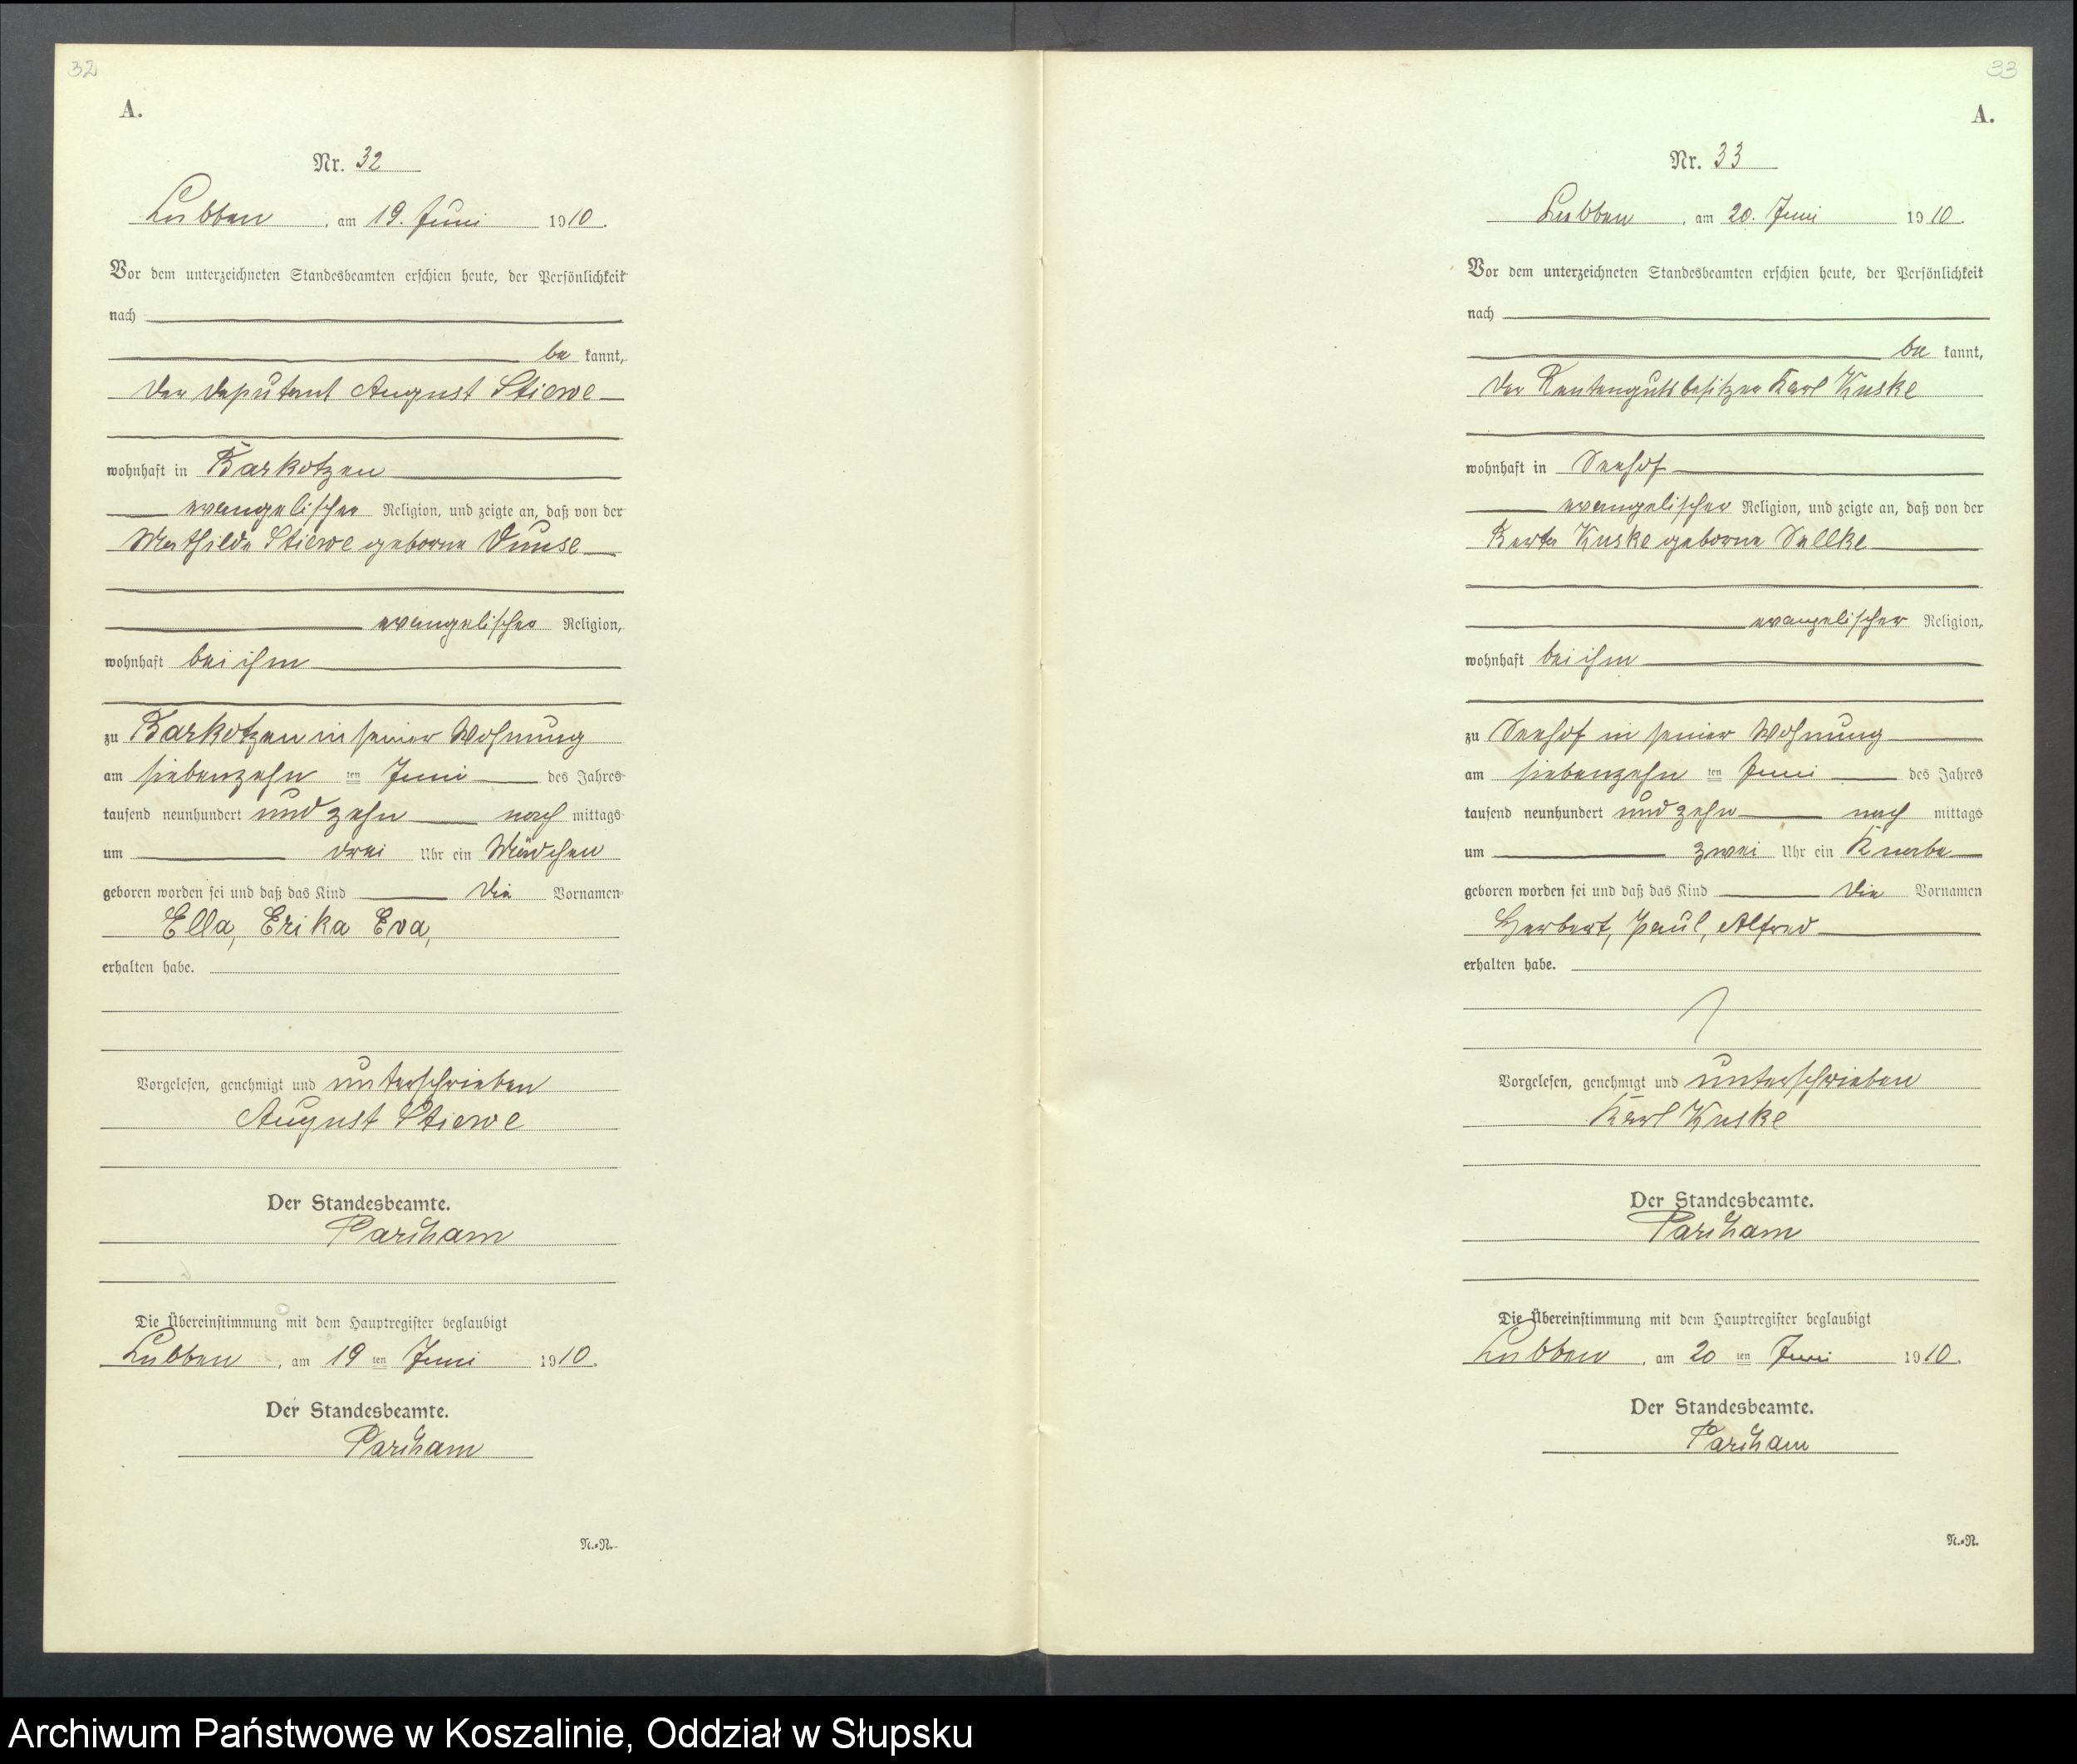 32
A.
Nr. 32
Lubben, am 19. Juni 1910.
Vor dem unterzeichneten Standesbeamten erschien heute, der Persönlichkeit
nach
be kannt,
der Deputant August Stiewe
wohnhaft in Barkotzen
evangelischer Religion, und zeigte an, daß von der
Mathilde Stiewe geborne
evangelischer Religion,
wohnhaft bei ihm
zu Barkotzen in seiner Wohnung
am siebenzehn ten Juni des Jahres
tausend neunhundert und zehn nach mittags
um drei Uhr ein Mädchen
geboren worden sei und daß das Kind die Vornamen
Ella, Erika Eva,
erhalten habe.
Vorgelesen, genehmigt und unterschrieben
August Stiewe
Der Standesbeamte.
Die Übereinstimmung mit dem Hauptregister beglaubigt
Lubben, am 19 ten Juni 1910.
Der Standesbeamte.
N.=R.
33
A.
Nr. 33
Lubben, am 20. Juni 1910.
Vor dem unterzeichneten Standesbeamten erschien heute, der Persönlichkeit
nach
be kannt,
der Rentengutsbesitzer Karl Kuske
wohnhaft in Seehof
evangelischer Religion, und zeigte an, daß von der
Berta Kuske geborne Sellke
evangelischer Religion,
wohnhaft bei ihm
zu Seehof in seiner Wohnung
am siebenzehn ten Juni des Jahres
tausend neunhundert und zehn nach mittags
um zwei Uhr ein Knabe
geboren worden sei und daß das Kind die Vornamen
Herbert, Paul, Alfred
erhalten habe.
Vorgelesen, genehmigt und unterschrieben
Karl Kuske
Der Standesbeamte.
Die Übereinstimmung mit dem Hauptregister beglaubigt
Lubben, am 20 ten Juni 1910.
Der Standesbeamte.
N.=R.
Archiwum Państwowe w Koszalinie, Oddział w Słupsku